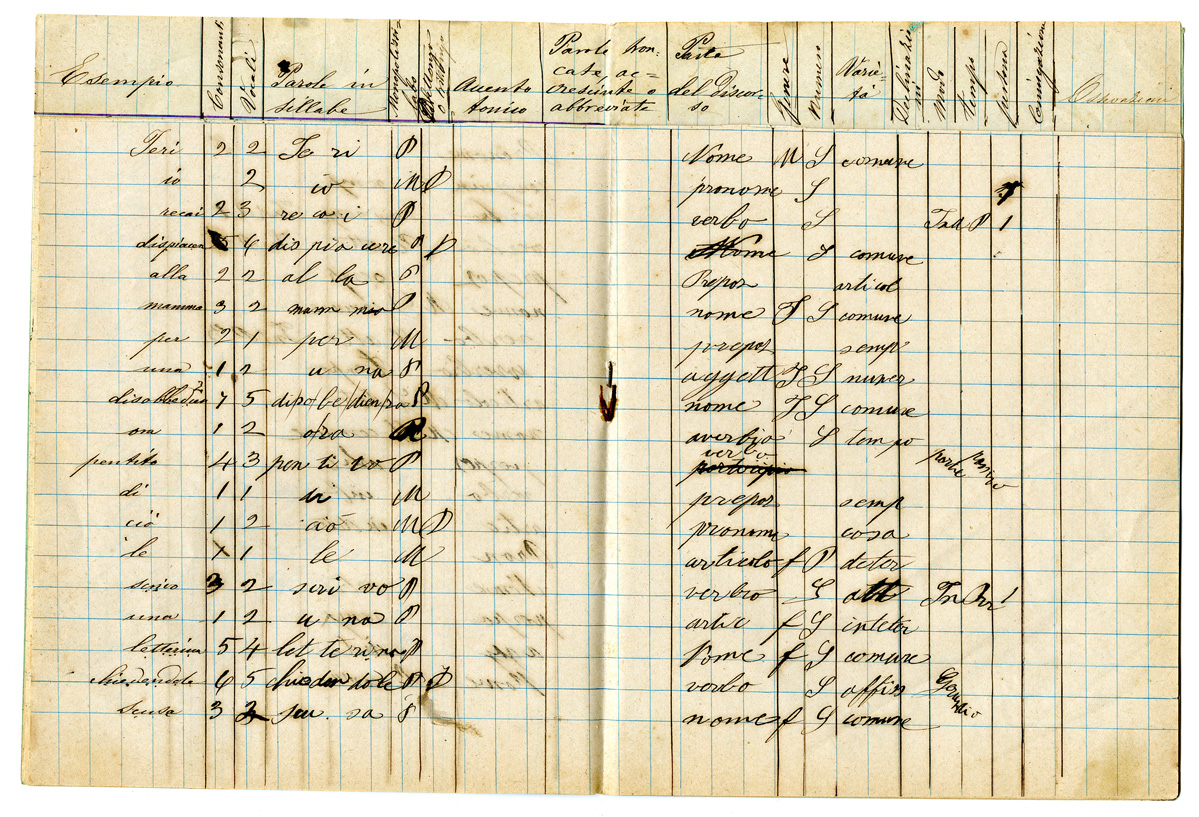 Esempio Consonanti Vocali Parole in sillabe Accento tonico Parole tron- cate, ac= cresciute o abbreviate Parte del Discor- so Genere Numero Varie- tà Modo tempo persona Coniugazione Osservazioni
Ieri 2 2 Ie ri P Nome M S comune
io 2 io M D pronome S
recai 2 3 re ca i P verbo S Ind P 1
dispiacere 5 6 dis pia cere P D Nome S comune
alla 2 2 al la P Prepos articol
mamma 3 2 mam ma P nome F S comune
per 2 1 per M prepos semp
una 1 2 u na P aggett F S numer
7 5 P nome F S comune
ora 1 2 o ra averbio S tempo
pentito 4 3 pen ti to P verbo participio passivo
di 1 1 di M prepos semp
ciò 1 2 ciò M D pronome cosa
le 1 1 le M articolo f P deter
scrivo 3 2 scri vo P verbo S att In Pr 1
una 1 2 u na P artic f S inteter
letterina 5 4 let te ri na P Nome f S comune
chiedendole 6 5 chieden do le P D verbo S affis Gerundio
scusa 3 3 scu sa P nome f S comune